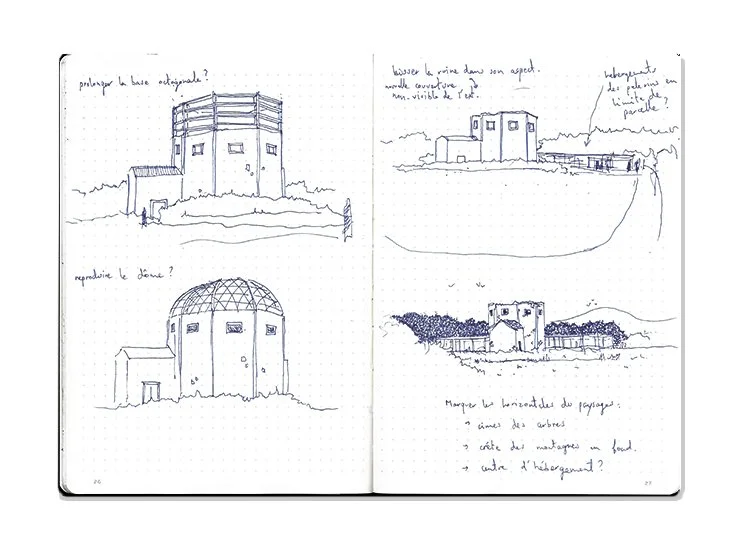 prolonger la base octogonale ?
reproduire le dôme ?
26
laisser la ruine dans son aspect.
nouvelle couverture
non-visible de l'ext.
hébergements
des pelerins en
limite de
parcelle ?
Marquer les horizontales du paysage :
→ cimes des arbres
→ crête des montagnes en fond.
→ centre d'hébergement ?
27